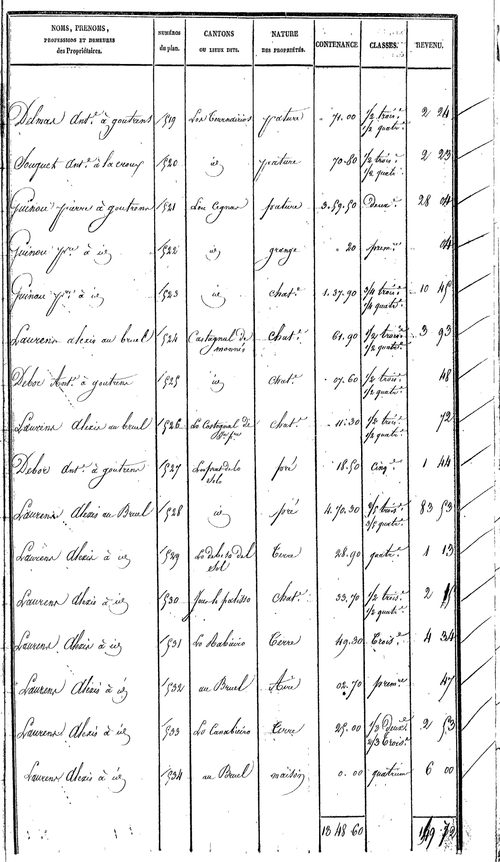 NOMS, PRENOMS, PROFESSIONS ET DEMEURES des Propriétaires. NUMÉROS du plan. CANTONS OU LIEUX DITS. NATURE DES PROPRIÉTÉS. CONTENANCE CLASSES. REVENU.
Delmas Ant.e à goutrens 1519 pature 71.00 1/2 trois.e 1/2 quatr.e 2 24
Souquet Ant.e à la croux 1520 id pature 70.80 1/2 trois.e 1/2 quatr.e 2 23
Guinou pierre à goutrens 1521 pature 3.59.50 Deux.e 28 04
Guinou p.re à id 1522 id grange 20 prem.e 04
Guinou p.re à id 1523 id chat.e 1.37.90 3/4 trois.e 1/4 quatr.e 10 45
Laurens alexis au bruel 1524 Castagnal de chat.e 61.90 1/2 trois.e 1/2 quatr.e 3 93
Debor Ant.e à goutrens 1525 id chat.e 07.60 1/2 trois.e 1/2 quatr.e 48
Laurens Alexis au bruel 1526 Lo Castagnal de chat.e 11.30 1/2 trois.e 1/2 quatr.e 72
Debor ant.e à goutrens 1527 pré 18.50 Cinq.e 1 44
Laurens Alexis au Bruel 1528 id pré 4.70.30 trois.e 3/5 quatr.e 83 53
Laurens Alexis à id 1529 Terre 28.90 quatr.e 1 13
Laurens Alexis à id 1530 chat.e 33.70 1/2 trois.e 1/2 quatr.e 2
Laurens Alexis à id 1531 Terre 49.30 Trois.e 4 34
Laurens Alexis à id 1532 au Bruel Aire 02.70 prem.e 47
Laurens Alexis à id 1533 Terre 25.00 1/3 Deux.e 2/3 Trois.e 2 53
Laurens Alexis à id 1534 au Bruel maison 0.00 quatrieme 6 00
13 48 60 149 72